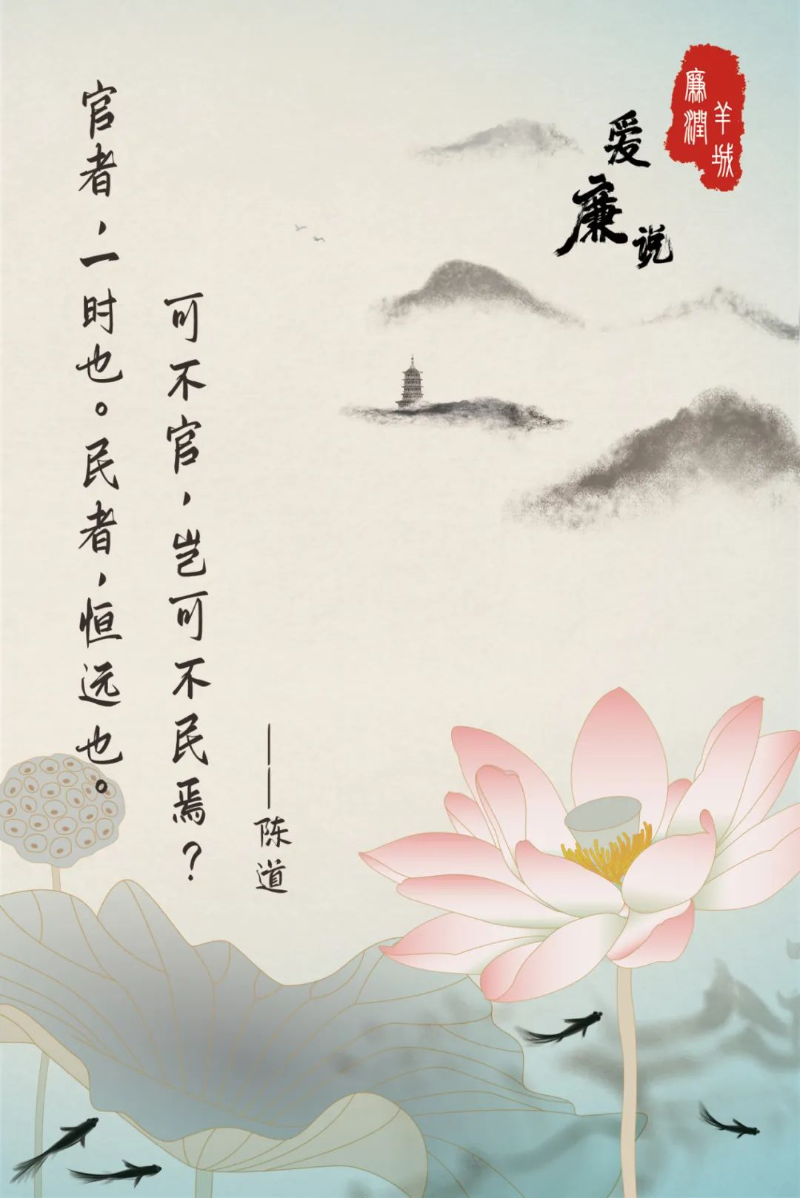 廉潤
羊城
爱廉说
官者，一时也。民者，恒远也。
可不官，岂可不民焉？
——陈道